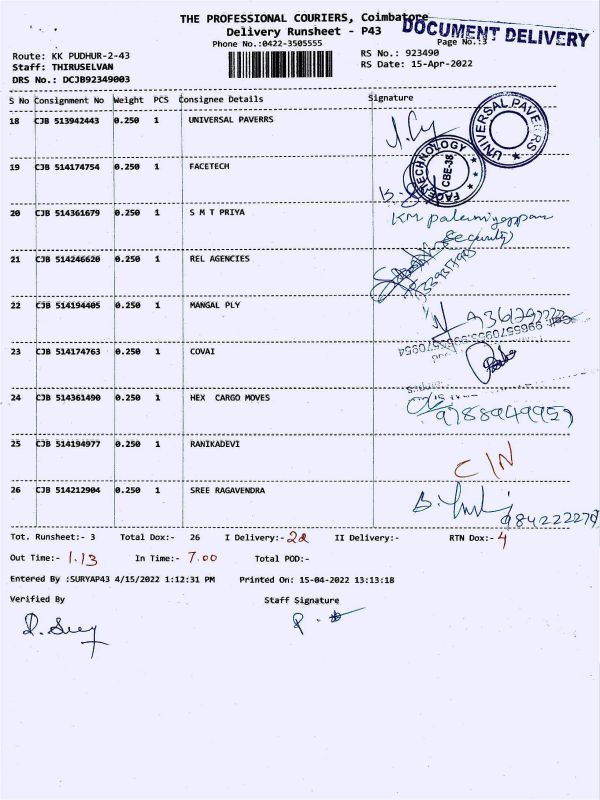 THE PROFESSIONAL COURIERS, Coimbatore
Delivery Runsheet - P43
DOCUMENT DELIVERY
Phone No.:0422-3505555
Page No.:3
Route: KK PUDHUR-2-43
RS No.: 923490
Staff: THIRUSELVAN
RS Date: 15-Apr-2022
DRS No.: DCJB92349003
S No Consignment No Weight PCS Consignee Details Signature
18 CJB 513942443 0.250 1 UNIVERSAL PAVERRS
UNIVERSAL PAVERRS
19 CJB 514174754 0.250 1 FACETECH
FACE TECHNOLOGY
CBE-38
20 CJB 514361679 0.250 1 S M T PRIYA
KM palaniyappan
(Security)
21 CJB 514246620 0.250 1 REL AGENCIES
22 CJB 514194405 0.250 1 MANGAL PLY
23 CJB 514174763 0.250 1 COVAI
24 CJB 514361490 0.250 1 HEX CARGO MOVES
9788949959
25 CJB 514194977 0.250 1 RANIKADEVI
C/N
26 CJB 514212904 0.250 1 SREE RAGAVENDRA
Tot. Runsheet:- 3 Total Dox:- 26 I Delivery:- 22 II Delivery:- RTN Dox:- 4
Out Time:- 1.13 In Time:- 7.00 Total POD:-
Entered By :SURYAP43 4/15/2022 1:12:31 PM Printed On: 15-04-2022 13:13:18
Verified By Staff Signature